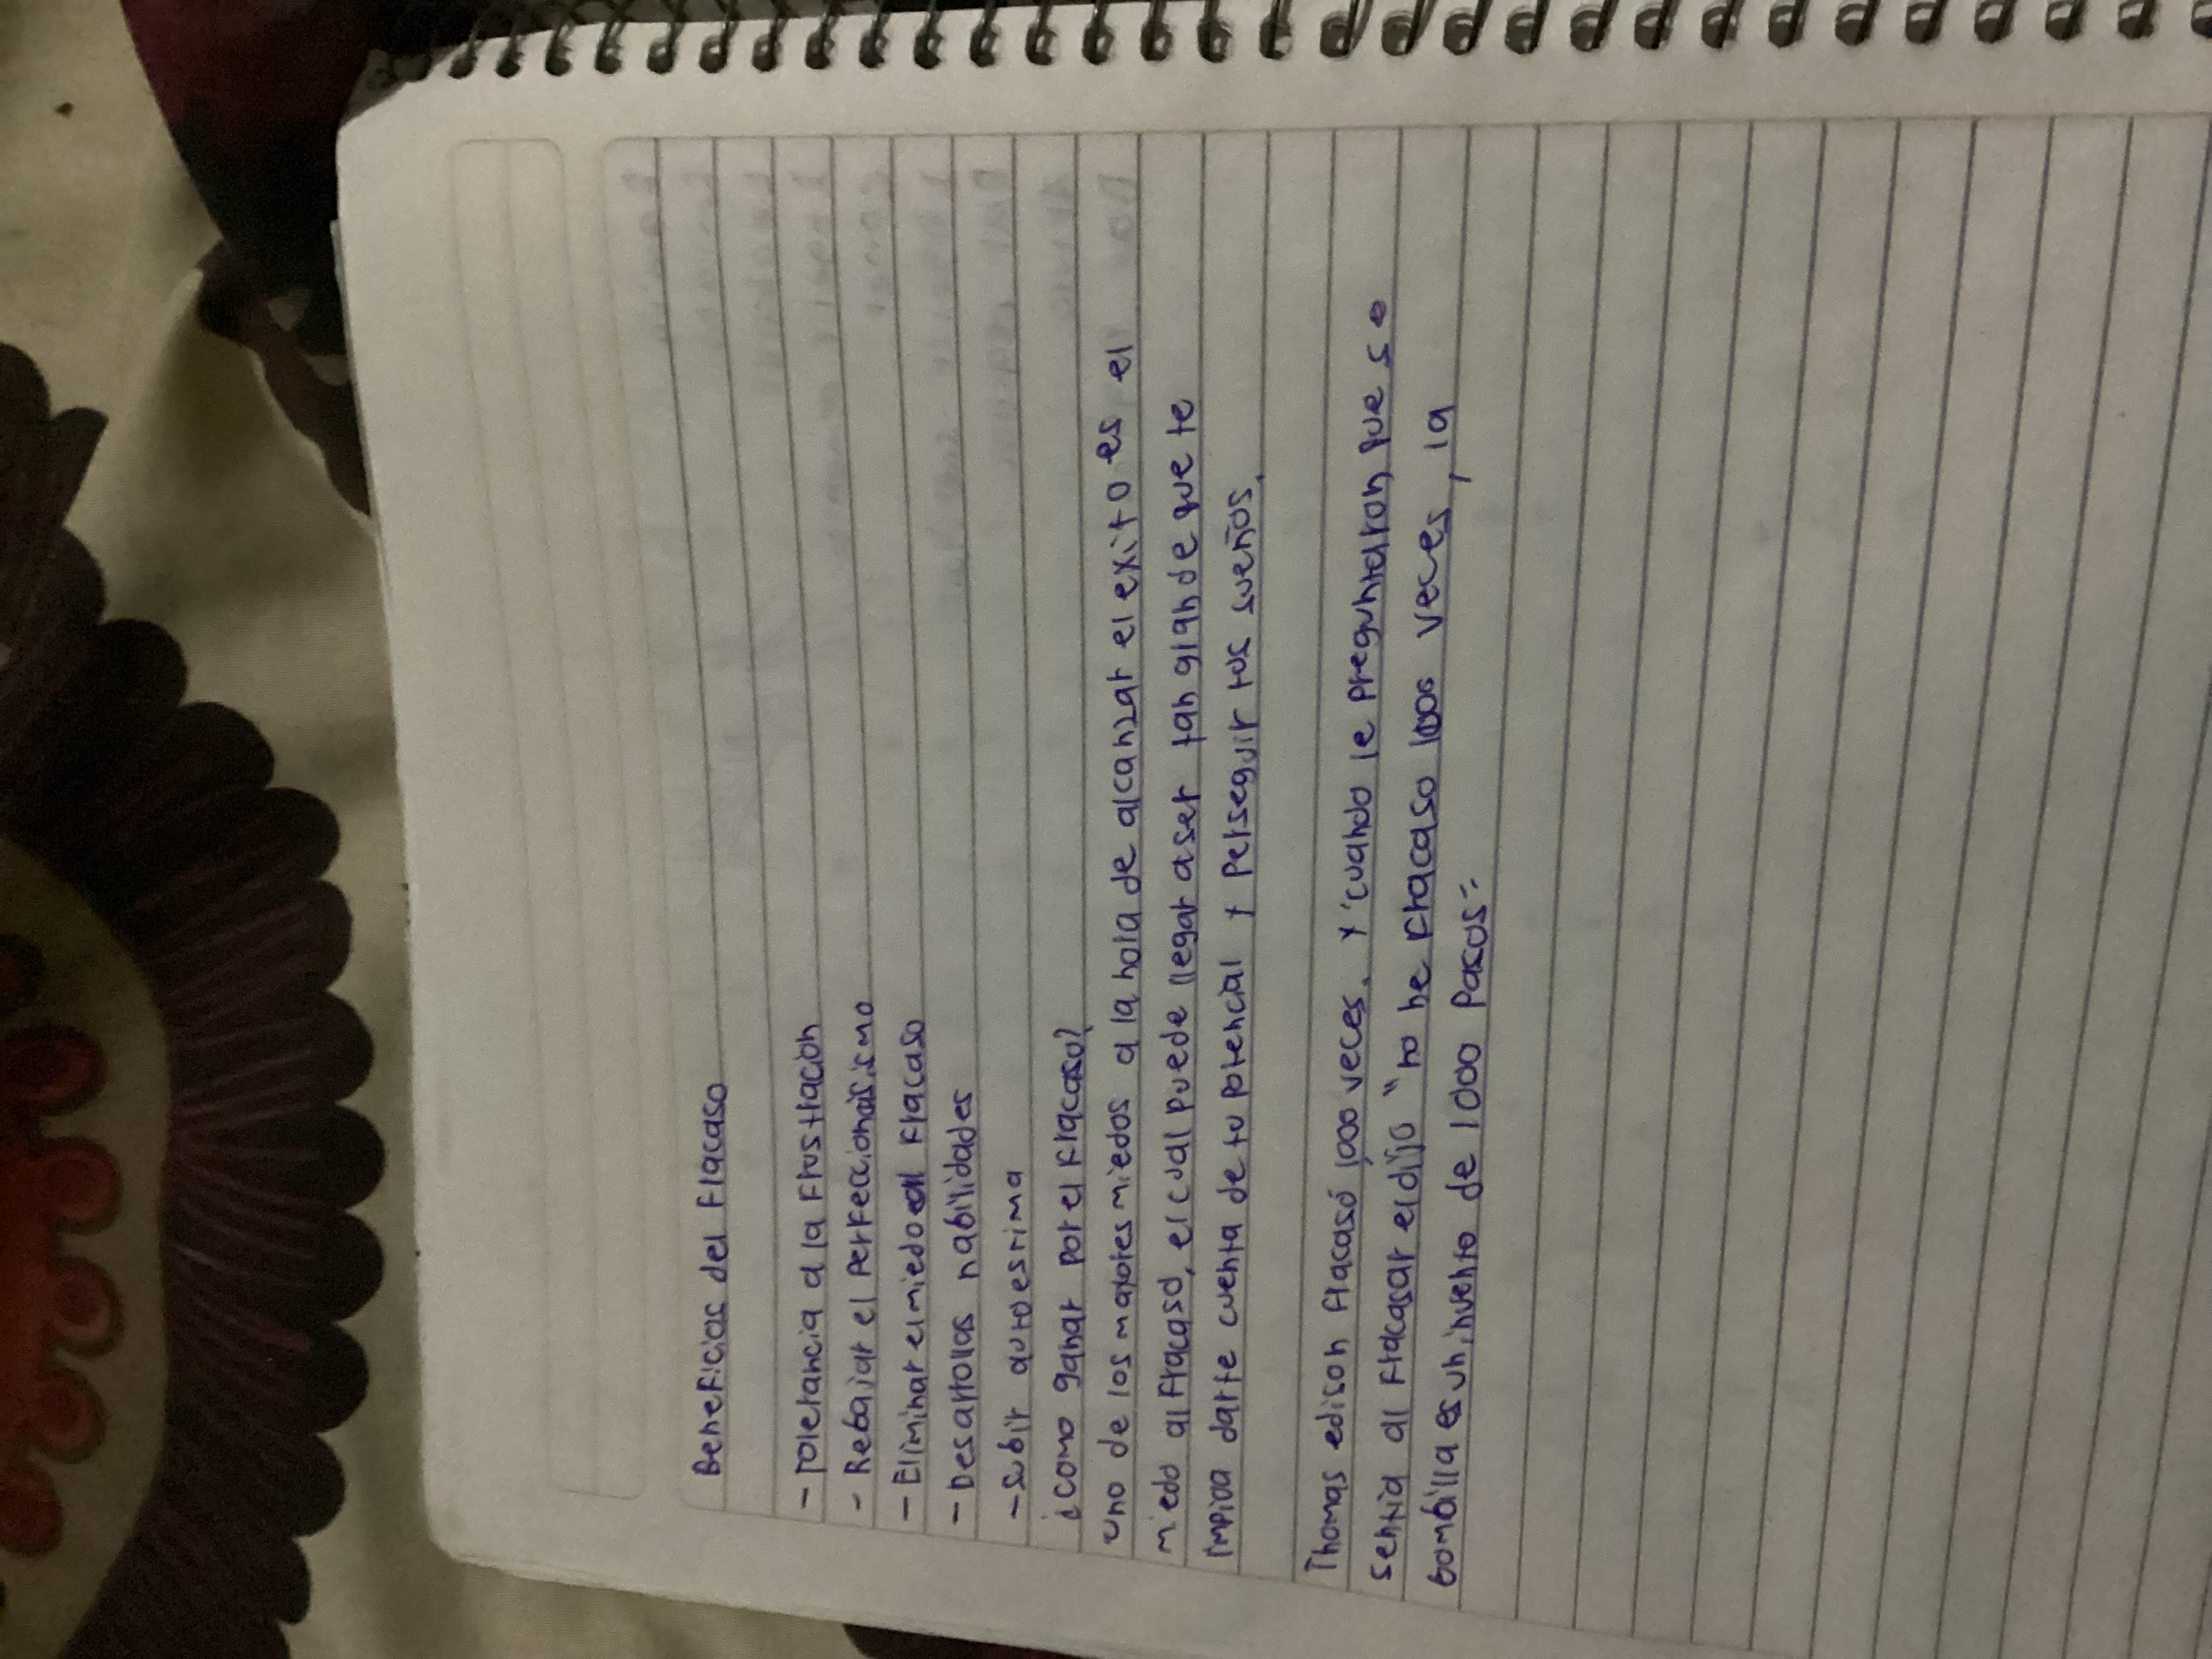 Beneficios del fracaso
- Tolerancia a la frustración
- Rebajar el perfeccionismo
- Eliminar el miedo al fracaso
- Desarrollas habilidades
- subir autoestima
¿Como ganar por el fracaso?
uno de los mayores miedos a la hora de alcanzar el exito es el
miedo al fracaso, el cual puede llegar a ser tan grande que te
impida darte cuenta de tu potencial y perseguir tus sueños.
Thomas edison fracasó 1,000 veces. Y cuando le preguntaron que se
sentia al fracasar el dijo "no he fracaso 1000 veces, la
bombilla es un invento de 1000 pasos"